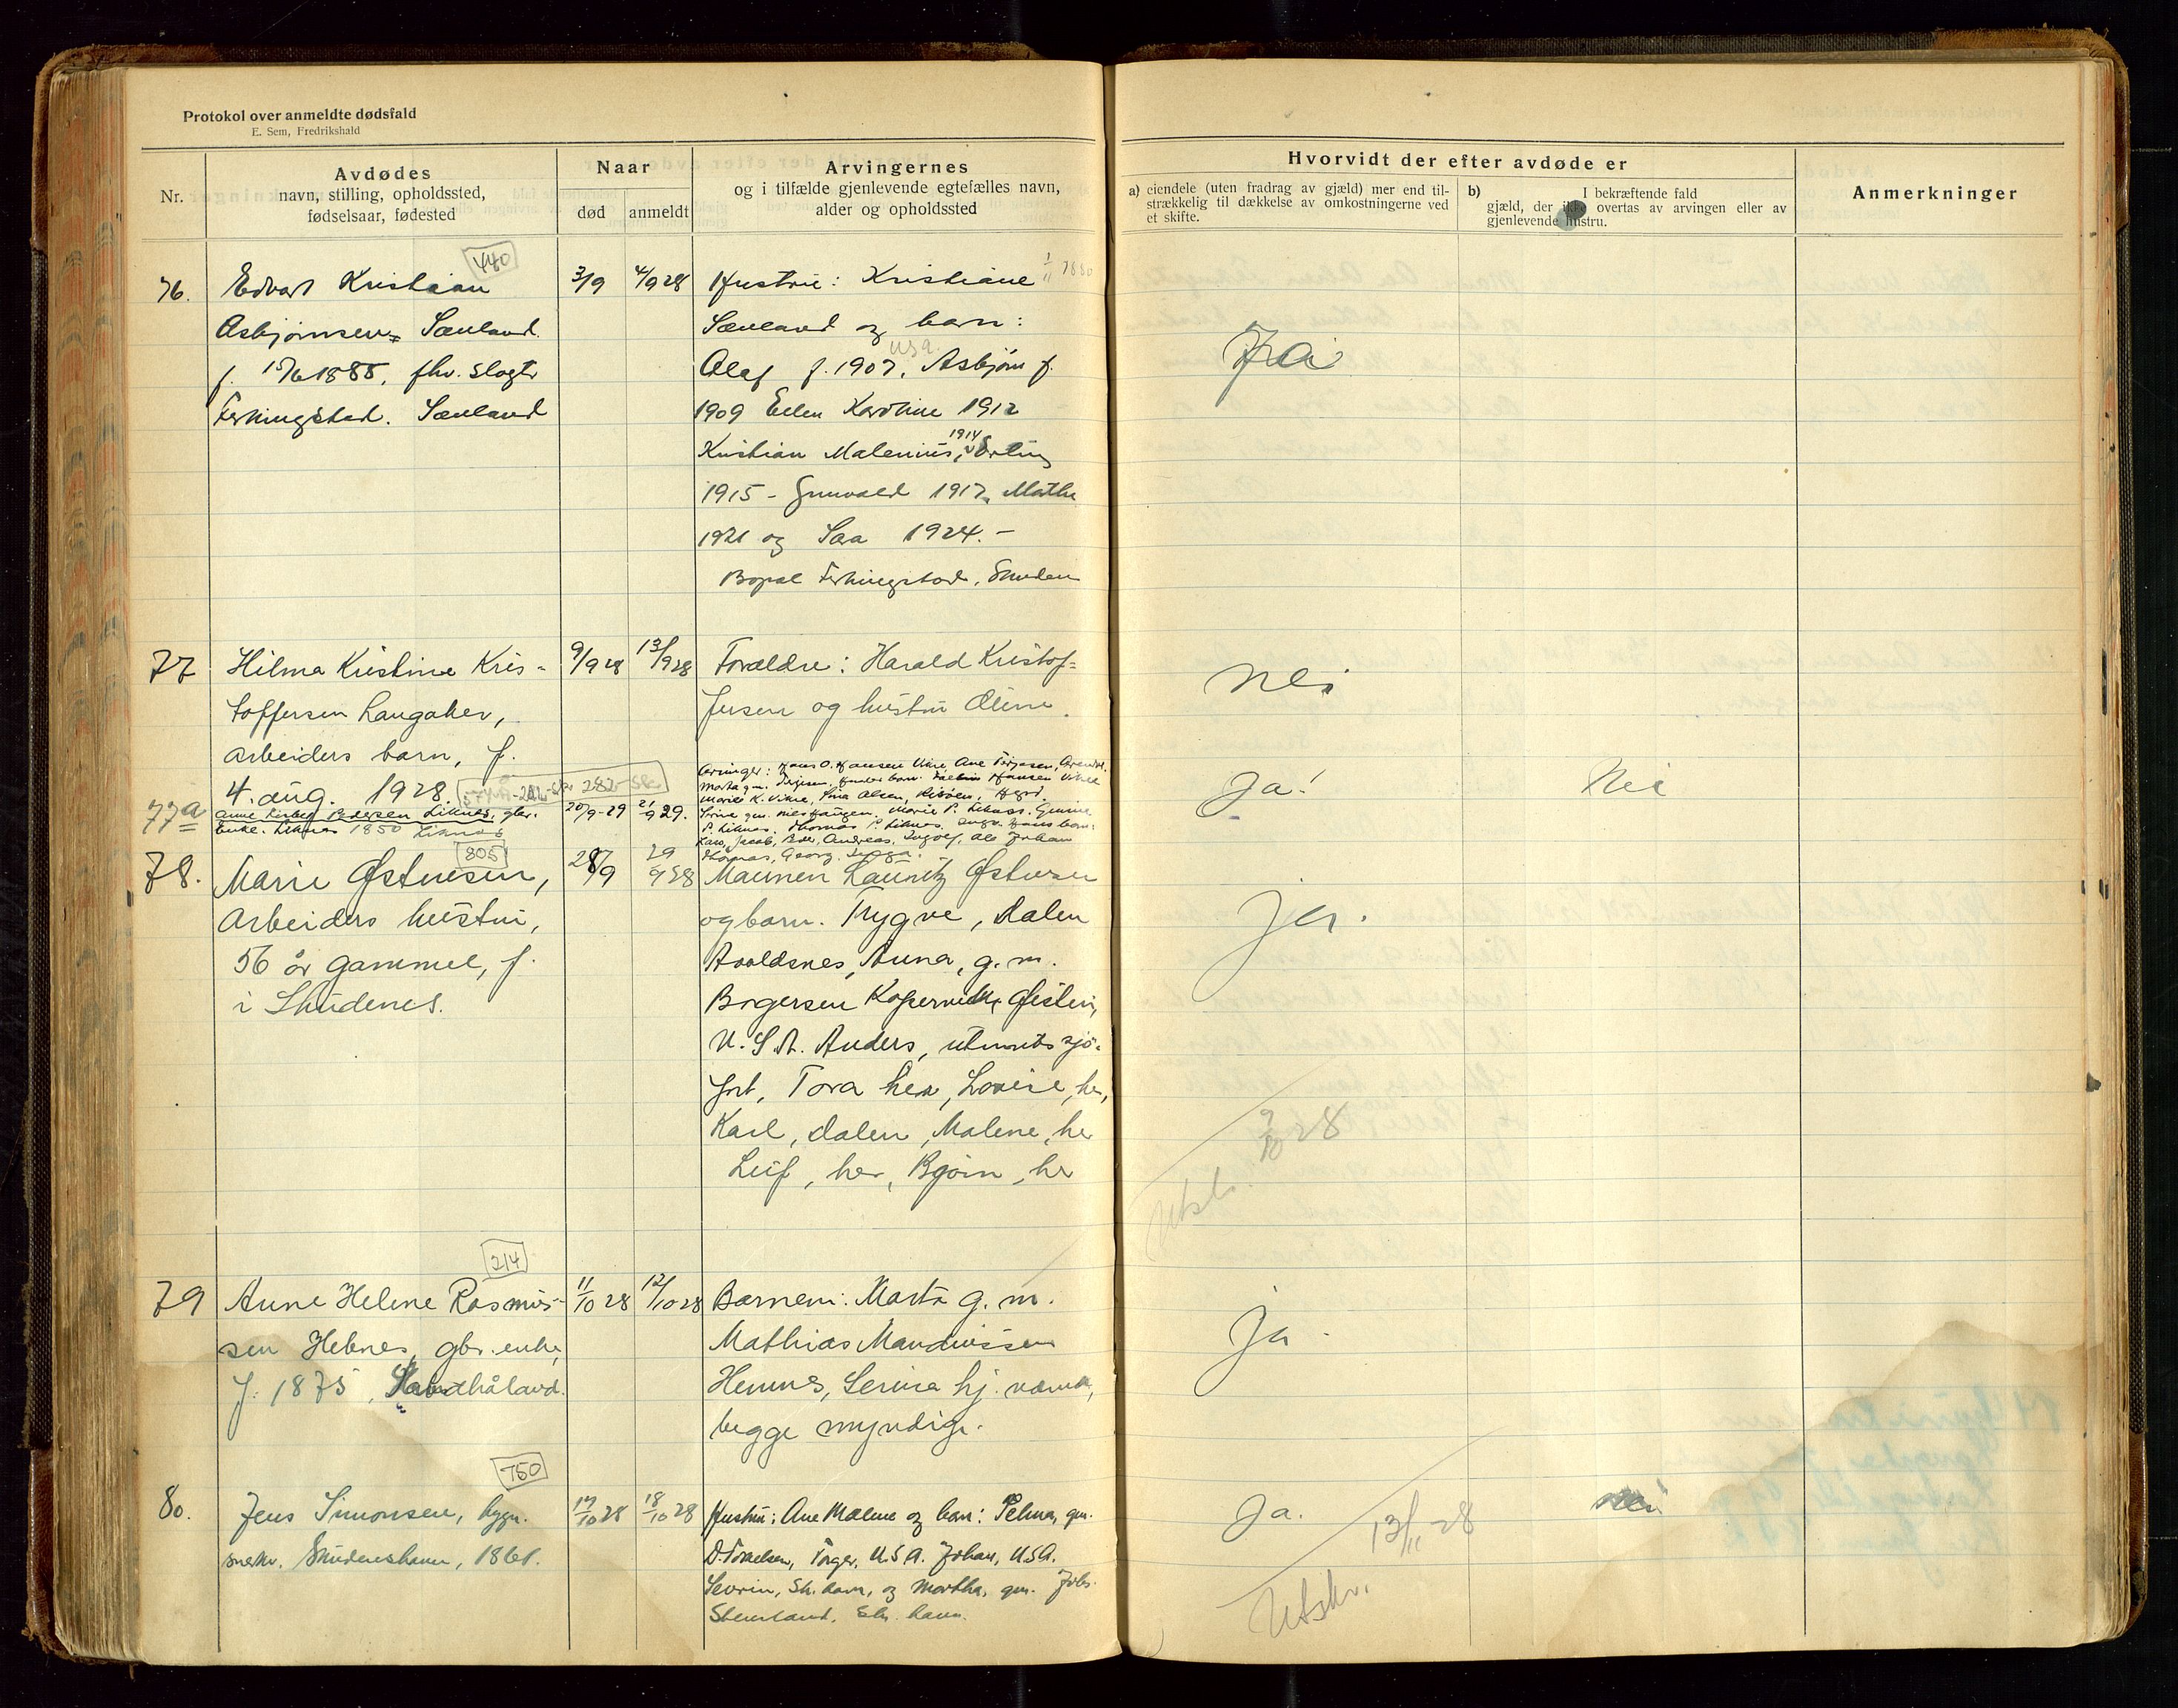 Protokol over anmeldte dødsfald
E. Sem, Fredrikshald
Nr.
Avdødes
navn, stilling, opholdssted,
fødselsaar, fødested
Naar
død
anmeldt
Arvingernes
og i tilfælde gjenlevende egtefælles navn,
alder og opholdssted
Hvorvidt der efter avdøde er
a) eiendele (uten fradrag av gjæld) mer end til-
strækkelig til dækkelse av omkostningerne ved
et skifte.
b) I bekræftende fald
gjæld, der ikke overtas av arvingen eller av
gjenlevende hustru.
Anmerkninger
440
76.
Edvart Kristian
Asbjørnsen Sænland.
f. 1885, fhv. slagter
Ferkingstad. Sænland
3/9
4/9 28
Hustru: Kristiane
Sænland og barn:
USA.
Olaf f. 1907, Asbjørn f.
1909 Ellen Karoline 1912
Kristian Malenius, 1914 Erling
1915 - Gunvald 1917, Marthe
1921 og Sara 1924. -
Bopæl Ferkingstad, Skuden
Ja
77
Hilma Kristine Kris-
toffersen Langaker,
arbeiders barn, f.
4. aug. 1928.
9/9 28
13/9 28
Foreldre: Harald Kristof-
fersen og hustru Oline.
nei
282
77a
Anne Pedersen Liknes, gbr.
Enke. Liknes 1850 Liknes
20/9-29
21/9 29.
Arvinger: Hans O. Hansen Vikre, Ane Torjesen,
Hansen Vikre
Marie K. Vikre, Olsen,
Marie P. Liknes.
P. Liknes. Thomas P. Liknes.
Lars, Jacob, Andreas, Ingolf, Johan
Thomas, Georg.
Ja!
Nei
805
78.
Marie Østensen,
Arbeiders hustru,
56 år gammel, f.
i Skudenes.
28/9
29/9 28
Mannen Launitz Østensen
og barn. Trygve, Dalen
Avaldsnes, Anna, g. m.
Borgersen Kopervik, Øistein,
U. S. A. Anders, utenriks sjø-
fart, Tora her, Lovise, her,
Karl, Dalen, Malene, her
Leif, her, Bjørn, her
ja.
9/10 28
Utskr.
214
79
Anne Helene Rasmus-
sen Hebnes, gbr. enke,
f. 1875, håland.
11/10 28
12/10 28
Barnene: Marta g. m.
Mathias
Hemnes, Serina hj. værende,
begge myndige.
ja.
750
80.
Jens Simonsen, bygn.
snekker. Skudeneshavn, 1861.
17/10 28
18/10 28
Hustru: Ane Malene og barn: Selma, gm.
D. Torkelsen, Torger, U.S.A. Johan, USA.
Sevrin, Sk. havn, og Martha, gm. Johs.
Steinsland, Sk. havn.
Ja.
13/11 28
Utskr.
nei